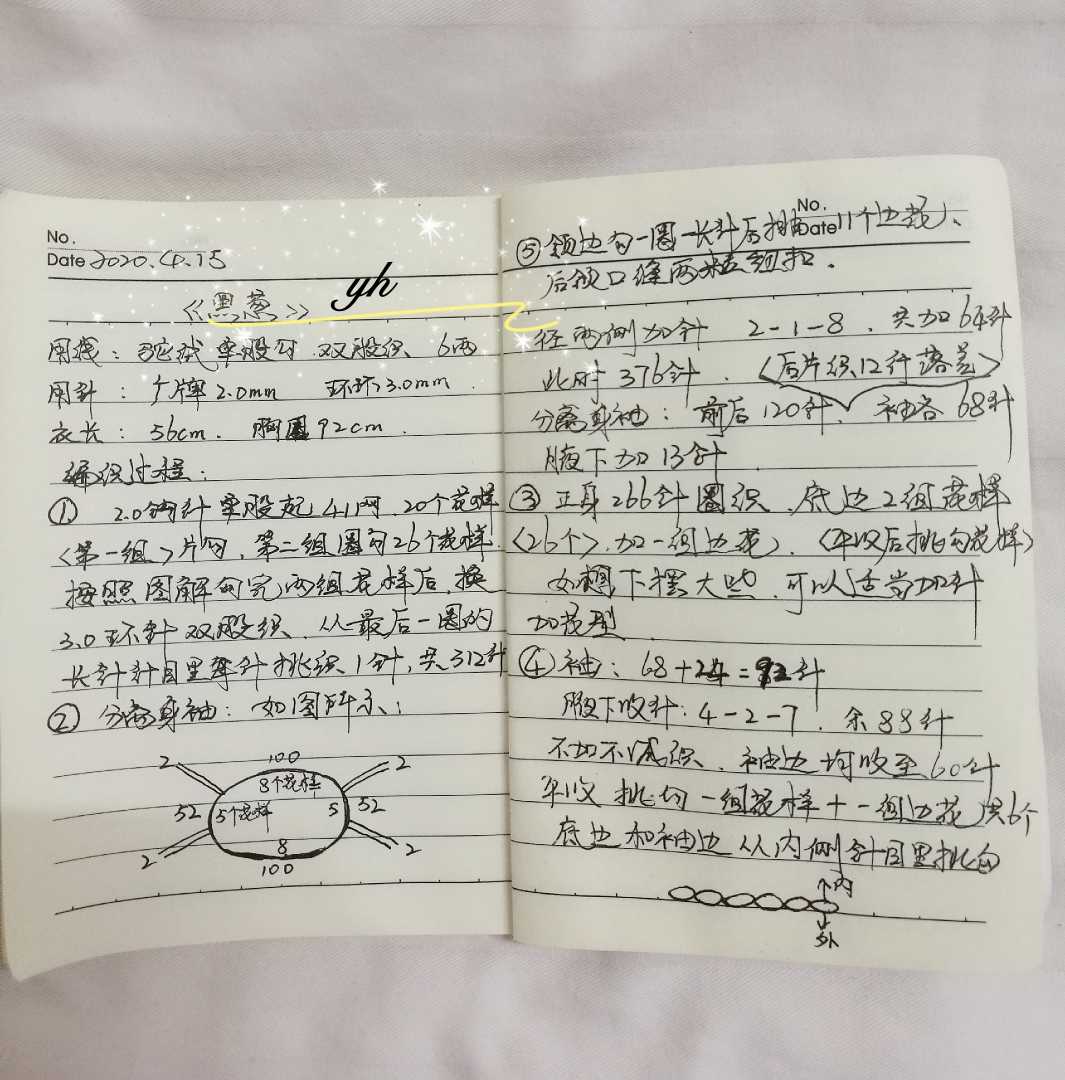 No.
Date 2020.4.15
《黑燕》
yh
用线：驼绒单股勾 双股织 6两
用针：广牌2.0mm 环环3.0mm
衣长：56cm. 胸围92cm.
编织过程：
① 2.0钩针单股起41网，20个花样
<第一组>片勾，第二组圈勾26个花样.
按照图解勾完两组花样后，换
3.0环针双股织，从最后一圈的
长针针目里每针挑织1针，共312针
② 分离身袖：如图所示：
100
2 2
8个花样
52 5个花样 5 52
8
2 2
100
No.
Date
⑤ 领边勾一圈一长针后挑11个边花，
后领口缝两粒纽扣.
径两侧加针 2-1-8. 共加64针
此时376针. <后片织12行落差>
分离身袖：前后120针、袖各68针
腋下加13针.
③ 正身266针圈织，底边2组花样
<26个>，加一组边花，<平收后挑勾花样>
如想下摆大些，可以适当加针
加花型.
④ 袖：68+24=92针
腋下收针：4-2-7. 余88针
不加不减织，袖边均收至60针
平收 挑勾一组花样+一组边花共6个
底边和袖边从内侧针目里挑勾
内
外